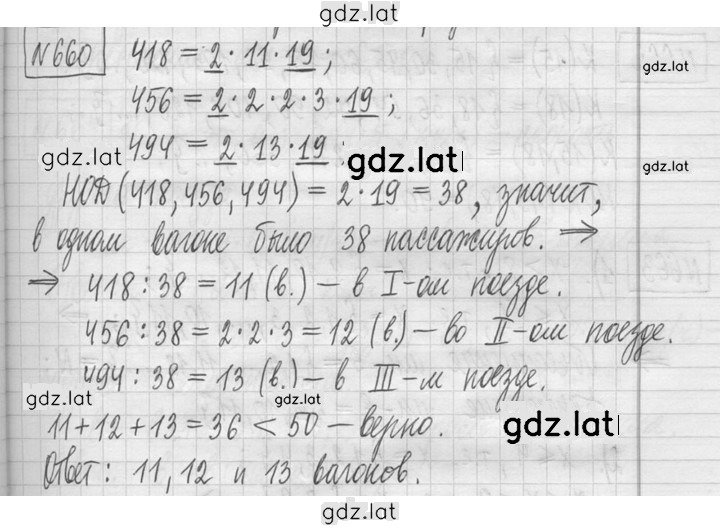 gdz.lat
N660 418 = 2 · 11 · 19;
gdz.lat
456 = 2 · 2 · 2 · 3 · 19;
494 = 2 · 13 · 19;
gdz.lat
gdz.lat
gdz.lat
НОД (418, 456, 494) = 2 · 19 = 38, значит,
в одном вагоне было 38 пассажиров. ⇒
⇒ 418 : 38 = 11 (в.) – в I-ом поезде.
456 : 38 = 2 · 2 · 3 = 12 (в.) – во II-ом поезде.
494 : 38 = 13 (в.) – в III-м поезде.
gdz.lat
gdz.lat
11 + 12 + 13 = 36 < 50 – верно.
gdz.lat
Ответ: 11, 12 и 13 вагонов.
gdz.lat